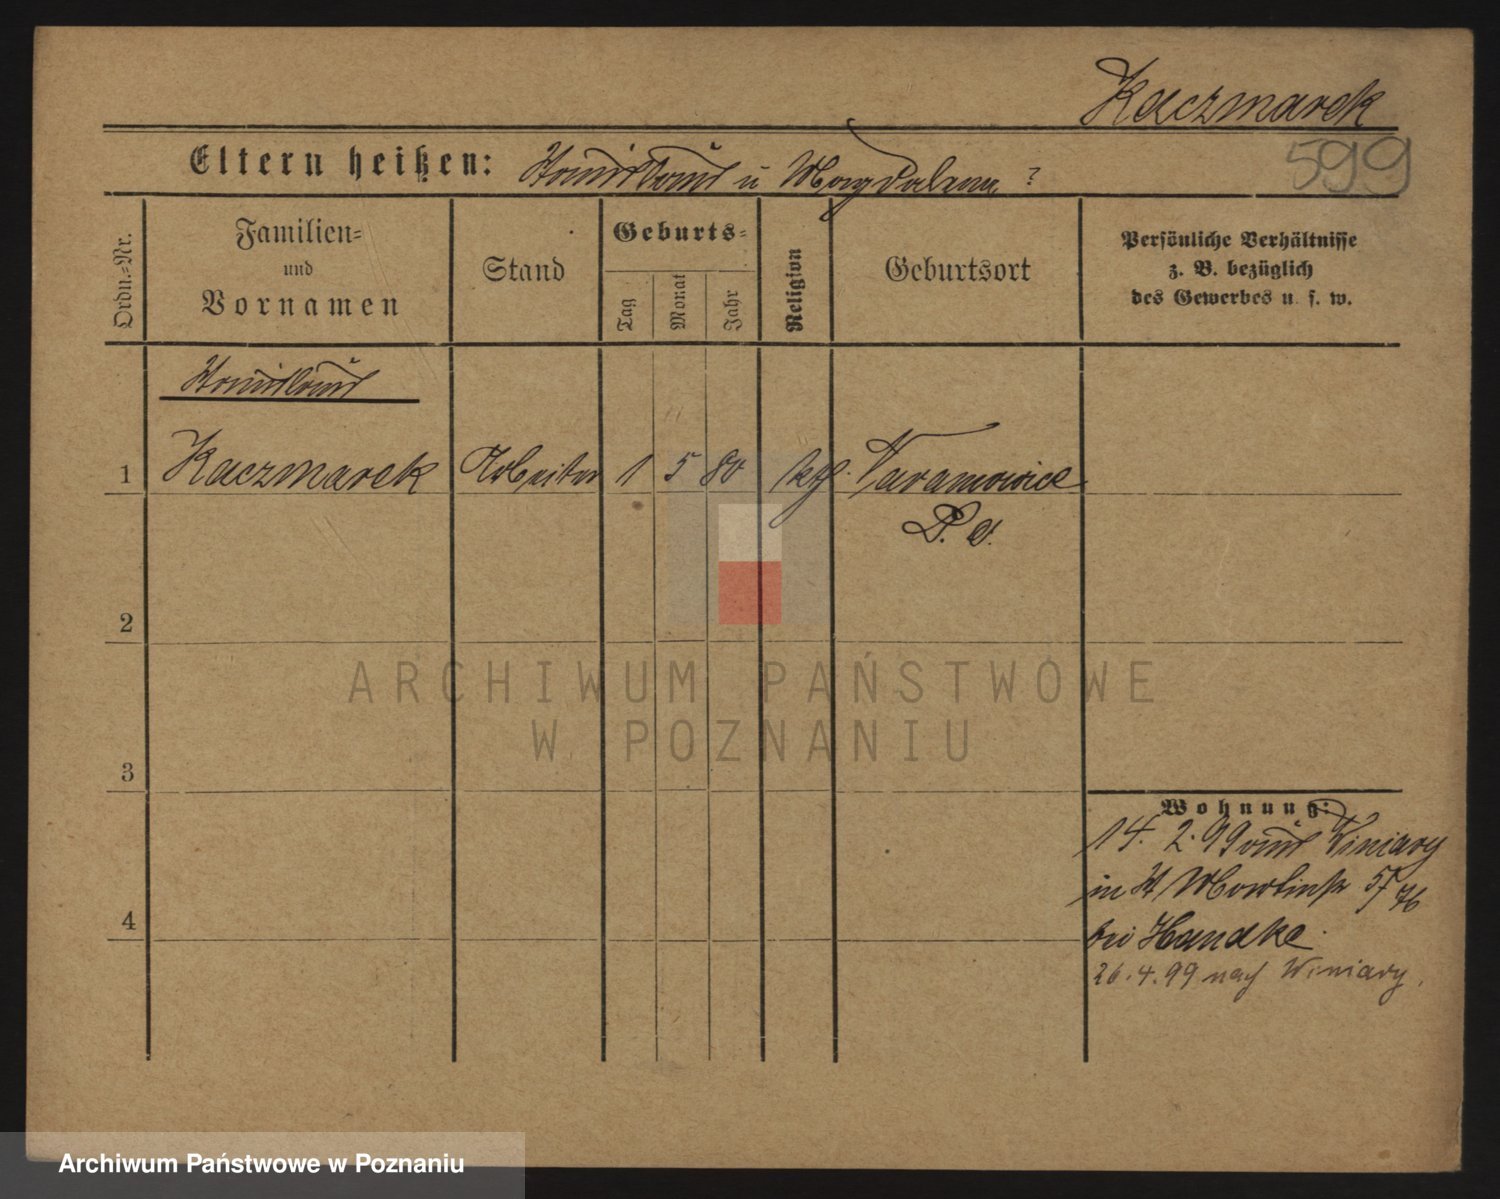 Kaczmarek
599
Eltern heißen: Stanislaus u Magdalena ?
Ordn.-Nr.
Familien-
und
Vornamen
Stand
Geburts-
Tag
Monat
Jahr
Religion
Geburtsort
Persönliche Verhältnisse
z. B. bezüglich
des Gewerbes u. s. w.
Stanislaus
1 Kaczmarek Arbeiter 1 5 80 kgl. Taranowice
P. O.
2
3
4
Wohnung:
14. 2. 99 aus Winiary
in St Martinstr 57
bei Handke.
26.4.99 nach Winiary.
ARCHIWUM PAŃSTWOWE
W POZNANIU
Archiwum Państwowe w Poznaniu